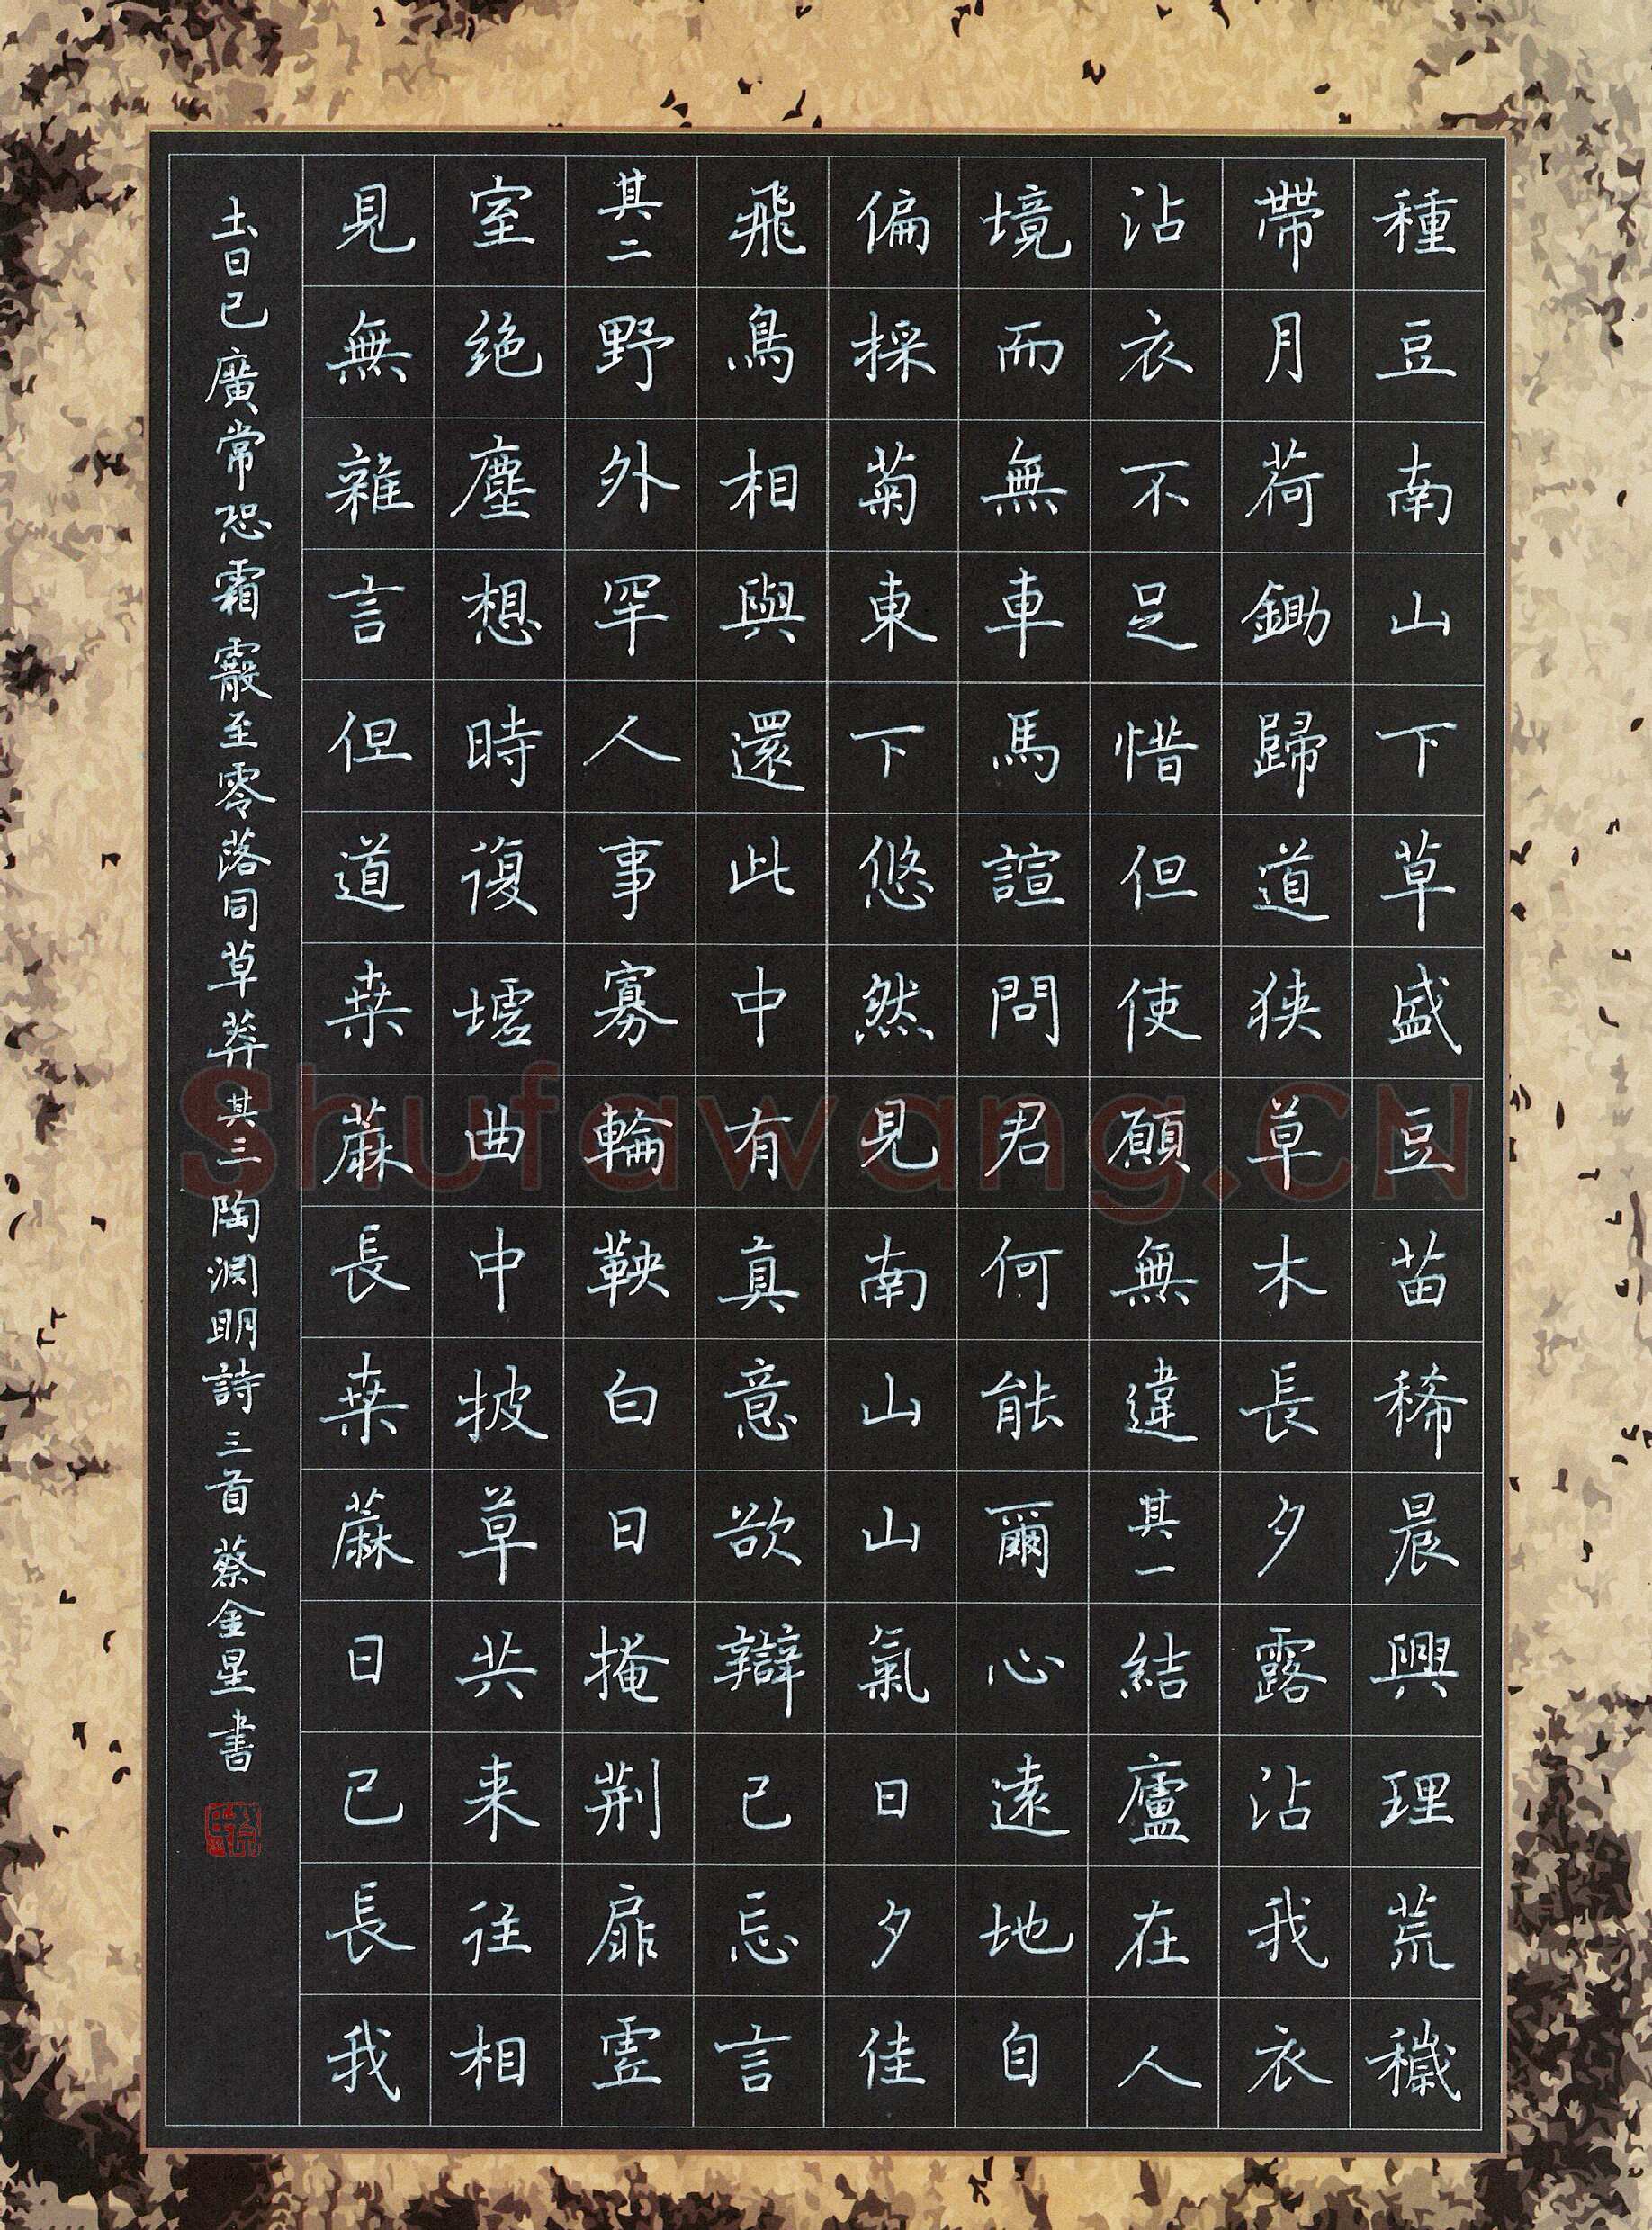 種豆南山下草盛豆苗稀晨興理荒穢
帶月荷鋤歸道狹草木長夕露沾我衣
沾衣不足惜但使願無違其一結廬在人
境而無車馬諠問君何能爾心遠地自
偏採菊東下悠然見南山山氣日夕佳
飛鳥相與還此中有真意欲辯已忘言
其二野外罕人事寡輪鞅白日掩荆扉虛
室绝塵想時復墟曲中披草共来往相
見無雜言但道桒蔴長桒蔴日已長我
土日已廣常恐霜霰至零落同草莽其三陶淵明詩三首蔡金星書
Shufawang.CN